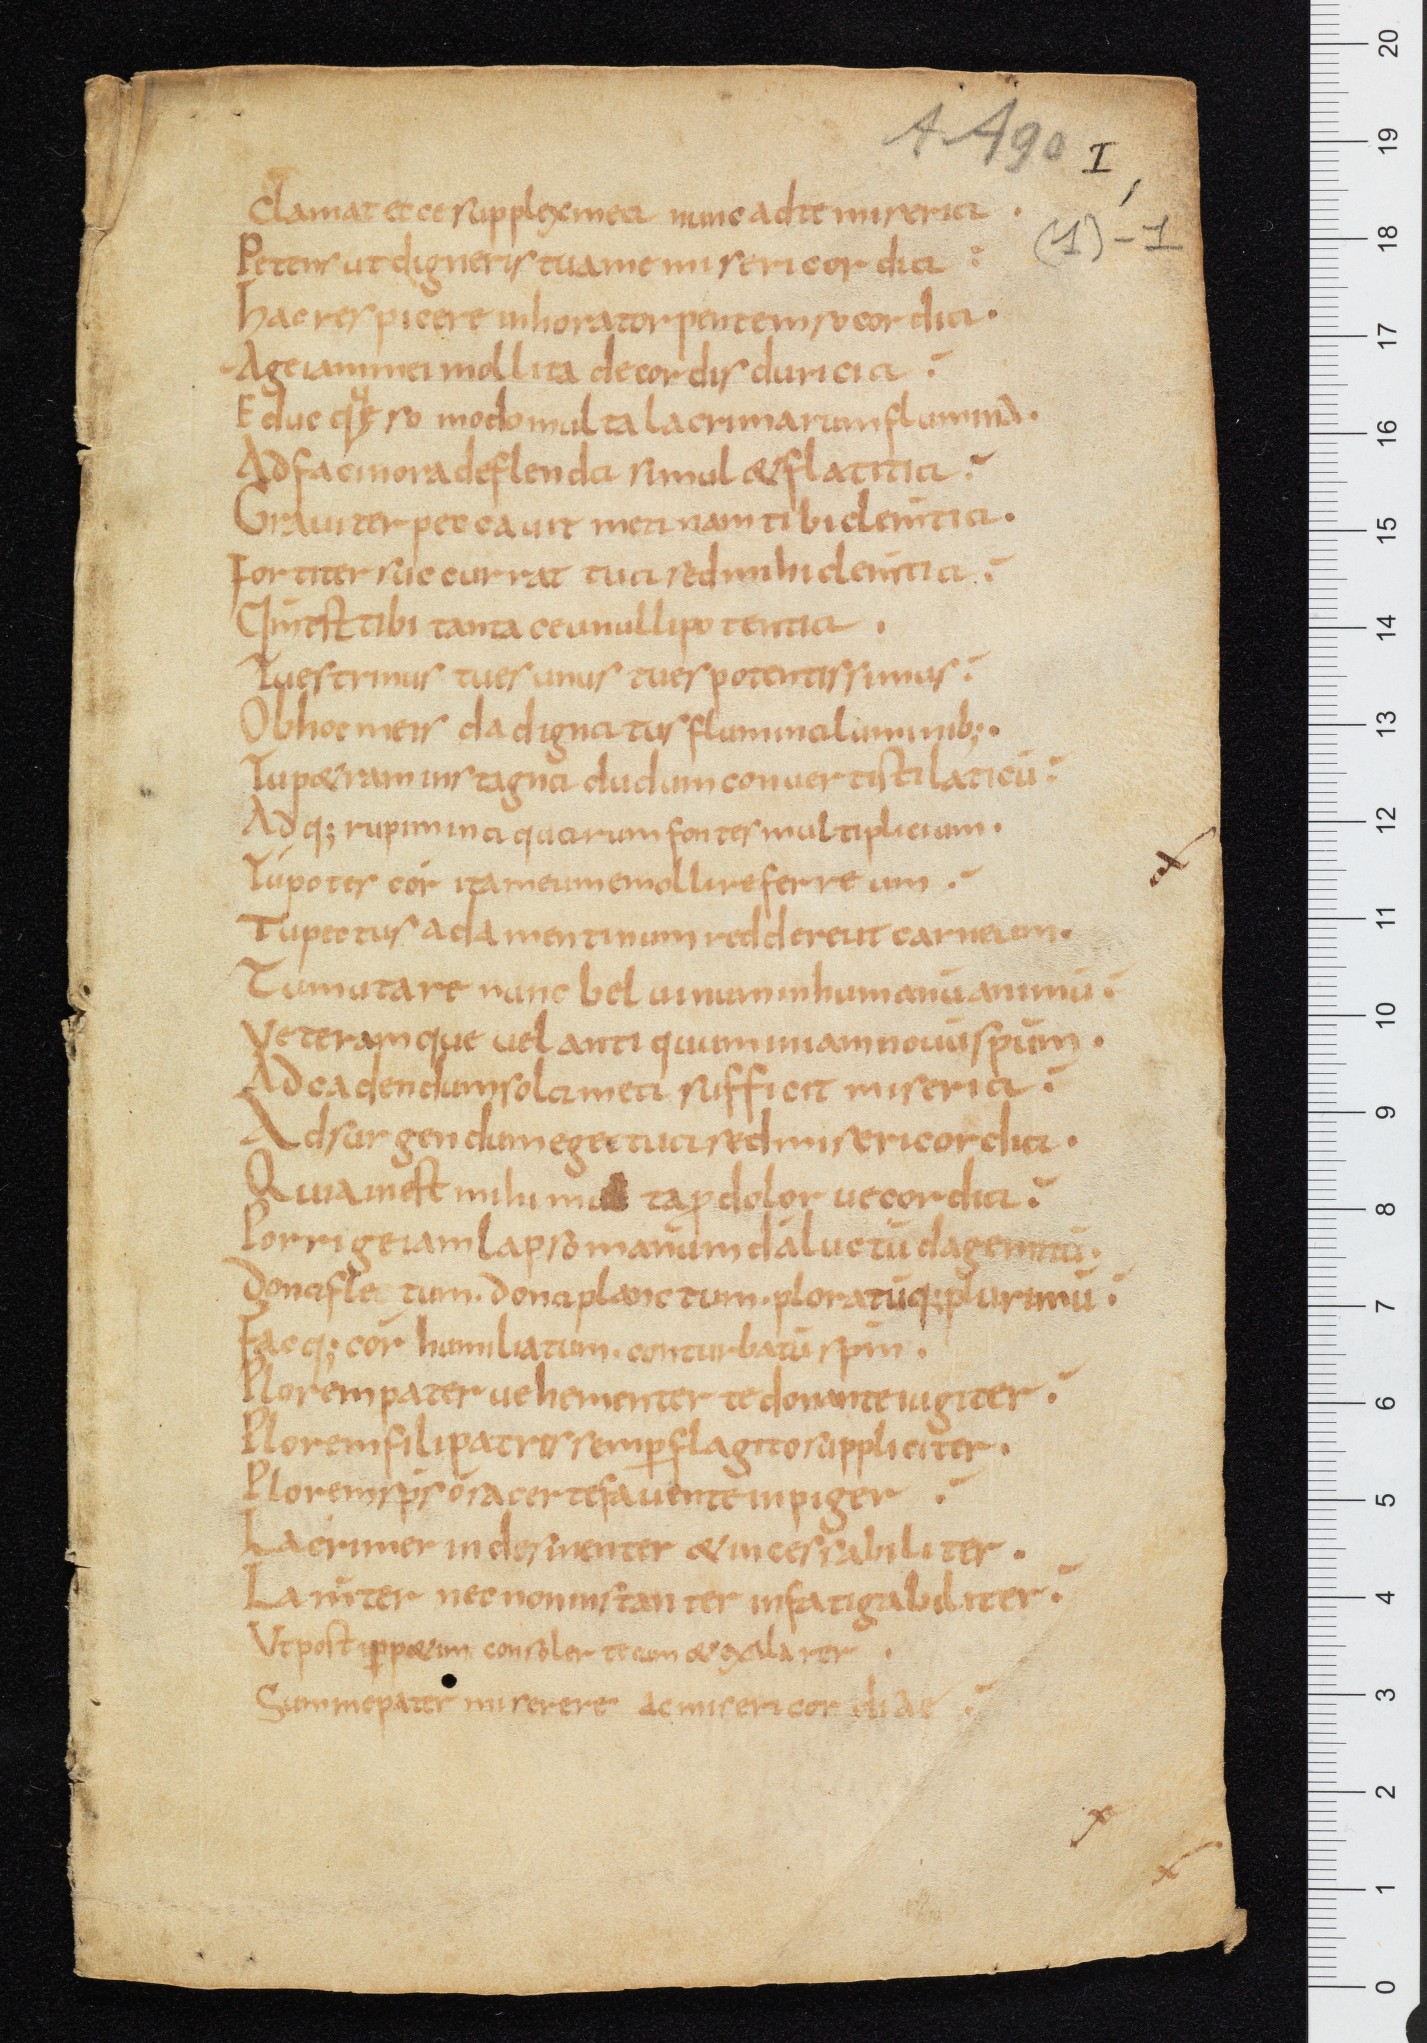 A. A 90 I
(1) - 1
Clamat et ce supplex mea nunc ad te miseria .
Petens ut digneris tua me misericordia :
Hac respicere in hora torpentem socordia .
Age iam mei mollita de cordis duricia :
Educ quęso modo multa lacrimarum flumina .
Ad facinora deflenda simul & flatitia :
Grauiter peccauit mea nam tibi dem̄tia .
Fortiter succurrat tua sed mihi clem̄tia :
Qm̄ est tibi tanta ceu nulli potentia .
Tu es trinus tu es unus tu es potentissimus :
Ob hoc meis da dignatus flumina luminib; .
Tu p&ram in stagna dudum conuertisti laticū :
Adq; rupim in aquarum fontes multiplicium .
Tu potes cór ita meum emollire ferreum :
Tu pectus adamentinum reddere ut carneum .
Tu mutare nunc beluinum in humanū animū :
Veteramque uel antiquum in iam nouū sp̄um .
Ad cadendum sola mea sufficit miseria :
Ad surgendum eget tua sed misericordia .
Quia inest mihi mul ta ꝓ dolor uecordia :
Porrige iam lapso manum dá luctū da gemitū .
Dona fletum . dona planctum . ploratūq; plurimū :
Facq; cór humiliatum . conturbatū sp̄m .
Plorem pater uehementer te donante iugiter :
Plorem fili patris semꝑ flagito suppliciter .
Plorem sp̄s ō sacer te fauente inpiger :
Lacrimer indesinenter & incessabiliter .
Lam̄ter nec non instanter infatigabiliter :
Ut post inꝑp&uum consoler tecum & exalarer .
Summe pater miserere ac misericordiae :